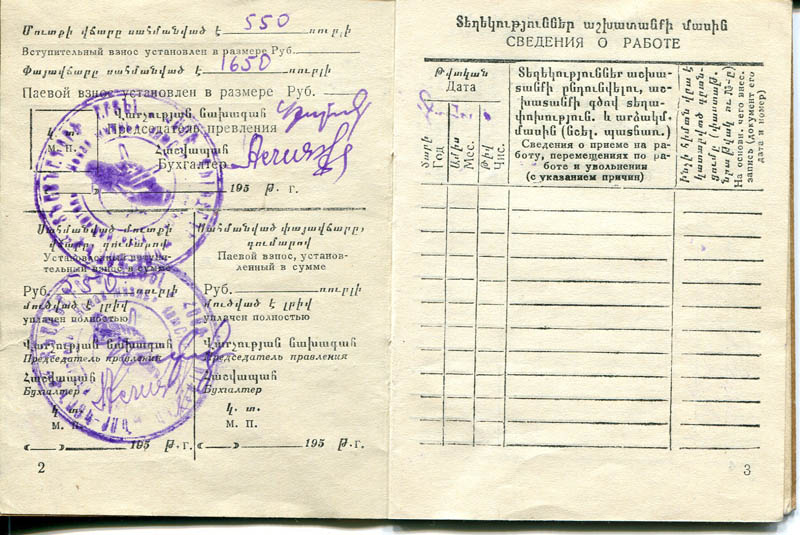 Մուտքի վճարը սահմանված է 550 ռուբլի
Вступительный взнос установлен в размере Руб.
Փայավճարը սահմանված է 1650 ռուբլի
Паевой взнос установлен в размере Руб.
Վարչության նախագահ
Председатель превления
М. П.
Հաշվապահ
Бухгалтер
195 թ. г.
Սահմանված մուտքի վճարը, գումարով
Սահմանված փայավճարը, գումարով
Установленный вступительный взнос в сумме
Паевой взнос, установленный в сумме
Руб. 550
Руб. ռուբլի
մուծված է լրիվ
մուծված է լրիվ
уплачен полностью
уплачен полностью
Վարչության նախագահ
Վարչության նախագահ
Председатель правления
Председатель правления
Հաշվապահ
Հաշվապահ
Бухгалтер
Бухгалтер
Կ. տ.
Կ. տ.
М. П.
М. П.
« » 195 թ. г.
« » 195 թ. г.
2
Տեղեկություններ աշխատանքի մասին
СВЕДЕНИЯ О РАБОТЕ
Թվական
Дата
Տարի
Год
Ամիս
Мес.
Թիվ
Чис.
Տեղեկություններ աշխա-
տանքի ընդունվելու, աշ-
խատանքի գծով տեղա-
փոխության. և արձակմ.
մասին (նշել. պատճառ.)
Сведения о приеме на ра-
боту, перемещениях по ра-
боте и увольнении
(с указанием причин)
Ինչի հիման վրա է
կատարված գրան-
ցումը (փաստաթ.
На основан. чего внес.
запись (документ его
дата и номер)
3